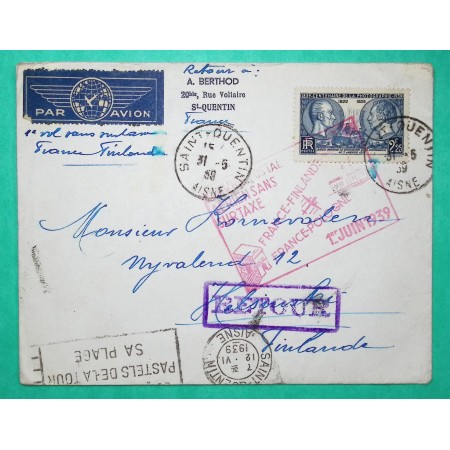 PAR AVION
Retour à :
A. BERTHOD
20bis, Rue Voltaire
St-QUENTIN
France
1er vol sans surtaxe
France Finlande
SAINT-QUENTIN
15
31-5
39
AISNE
CENTENAIRE DE LA PHOTOGRAPHIE
1839 1939
RF 2F25
31-5
39
AISNE
SANS
SURTAXE
FRANCE-FINLANDE
FRANCE-POLOGNE
1er JUIN 1939
Monsieur
Nyvalend 12
RETOUR
Helsinki
Finlande
PASTELS DE LA TOUR
SA PLACE
SAINT-QUENTIN
7
12 · VI
1939
AISNE